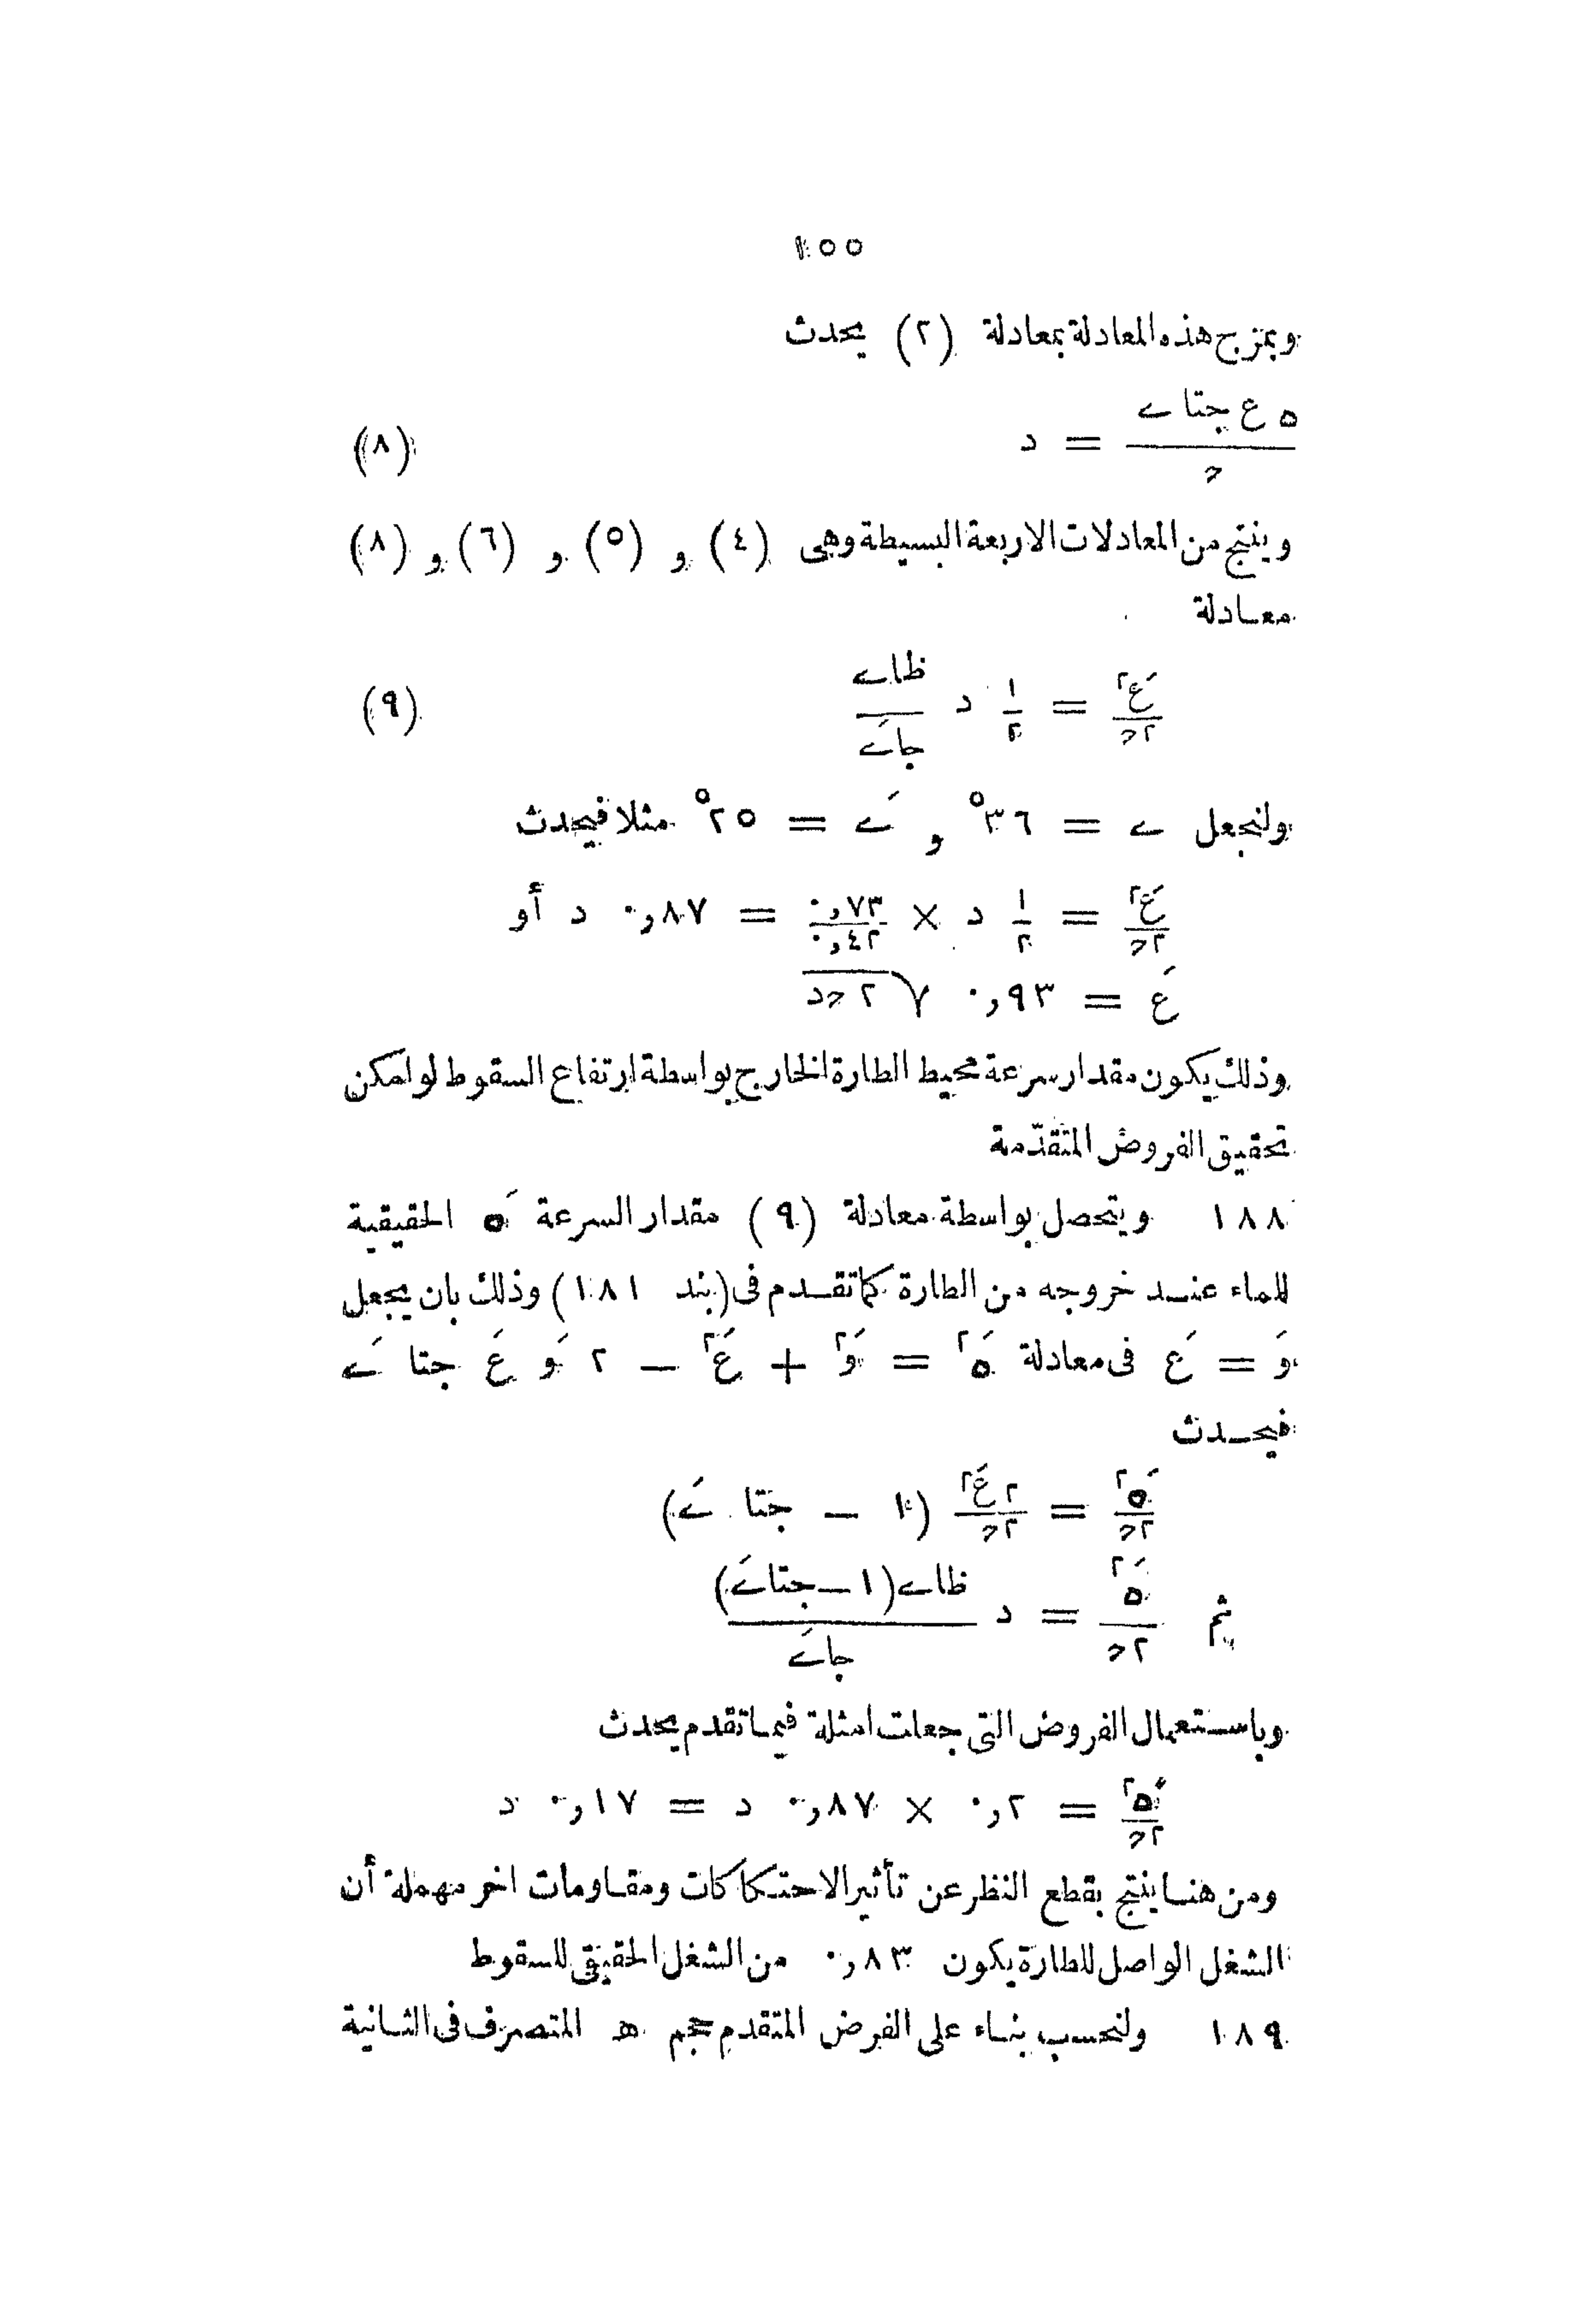 ١٥٥
وبمزج هذه المعادلة بمعادلة (٢) يحدث
ه ع جتا ے / ح = د (٨)
وينتج من المعادلات الاربعة البسيطة وهى (٤) و (٥) و (٦) و (٨)
معادلة
عَ٢ / ٢ح = ١/٢ د ظاے / جاےَ (٩)
ولنجعل ے = ٣٦° و ےَ = ٢٥° مثلا فيحدث
عَ٢ / ٢ح = ١/٢ د × ٠,٧٣ / ٠,٤٢ = ٠,٨٧ د أو
عَ = ٠,٩٣ √ ٢ ح د
وذلك يكون مقدار سرعة محيط الطارة الخارج بواسطة ارتفاع السقوط لوامكن
تحقيق الفروض المتقدّمة
١٨٨ ويتحصل بواسطة معادلة (٩) مقدار السرعة هَ الحقيقية
للماء عند خروجه من الطارة كما تقدم فى (بند ١٨١) وذلك بان يجعل
وَ = عَ فى معادلة هَ٢ = وَ٢ + عَ٢ − ٢ وَ عَ جتا ےَ
فيحدث
هَ٢ / ٢ح = ٢ عَ٢ / ٢ح (١ − جتا ےَ)
ثم هَ٢ / ٢ح = د ظاے (١ − جتاےَ) / جاےَ
وباستعمال الفروض التى جعلت امثلة فيما تقدم يحدث
هَ٢ / ٢ح = ٠,٢ × ٠,٨٧ د = ٠,١٧ د
ومن هنا ينتج بقطع النظر عن تأثير الاحتكاكات ومقاومات اخر مهملة أن
الشغل الواصل للطارة يكون ٠,٨٣ من الشغل الحقيقى للسقوط
١٨٩ ولنحسب بناء على الفرض المتقدم حجم ھ المتصرف فى الثانية